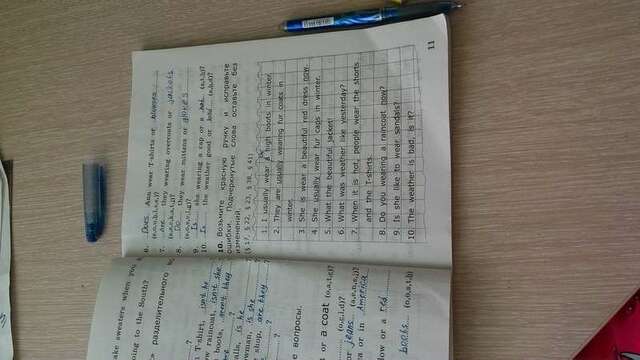 ake sweaters when you
oing to the South?
разделительного
?
T-shirt, isn't he
raincoat, isn't she
boots, aren't they
?
alls, is he
wman, is she
shop, are they
?
е вопросы.
or a coat (o,a,t,c)?
(o,c,l,d)?
or jeans (a,e,n,s,j)?
ea or in America
low or a red
boots (o,o,s,t,b)
6. Does Ann wear T-shirts or blouses
(e,o,u,b,l,s,s)?
7. Are they wearing overcoats or jackets
(e,s,c,k,a,t,j)?
8. Do they wear mittens or gloves
(e,o,s,v,l,g)?
9. Is she wearing a cap or a hat (a,t,h)?
10. Is the weather good or bad (a,b,d)?
10. Возьмите красную ручку и исправьте
ошибки. Подчеркнутые слова оставьте без
изменений.
(§ 17, § 22, § 23, § 38, § 41)
1. I usually wear a high boots in winter.
2. They are usually wearing fur coats in
winter.
3. She is wear a beautiful red dress now.
4. She usually wear fur caps in winter.
5. What the beautiful jacket!
6. What was weather like yesterday?
7. When it is hot, people wear the shorts
and the T-shirts.
8. Do you wearing a raincoat now?
9. Is she like to wear sandals?
10. The weather is bad, is it?
11